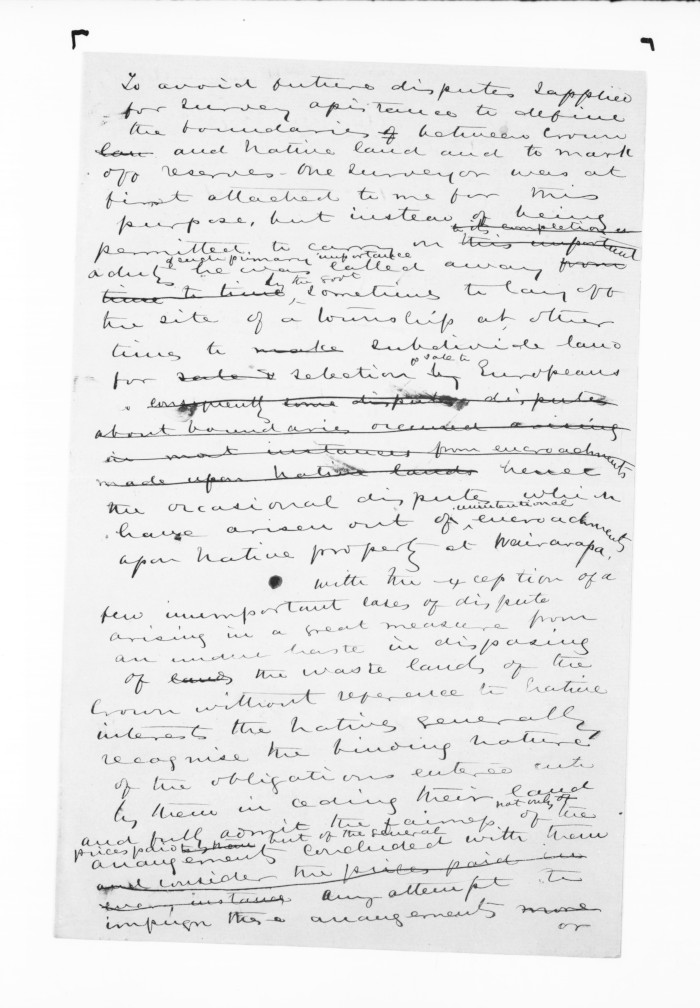 To avoid future disputes I applied
for survey assistance to define
the boundaries of between Crown
law and Native land and to mark
off reserves - One surveyor was at
first attached to me for this
purpose, but instead of being
to its completion a
permitted to carry on this important
of such primary importance
a duty he was called away from
by the govt
time to time, sometimes to lay off
the site of a township at other
times to make subdivide land
& sale to
for sale & selection by Europeans
consequently some disputes disputes
about boundaries occurred arising
in most instances from encroachments
made upon Native lands hence
the occasional disputes which
unintentional
have arisen out of encroachments
upon Native property at Wairarapa.
with the exception of a
few unimportant cases of dispute
arising in a great measure from
an undue haste in disposing
of lands the waste lands of the
Crown without reference to Native
interests the Natives generally
recognise the binding nature
of the obligations entered into
by them in ceding their land
not only of
and fully admit the fairness of the
prices paid to them but of the general
arrangements concluded with them
and consider the prices paid in
every instance any attempt to
impugn these arrangements more
or